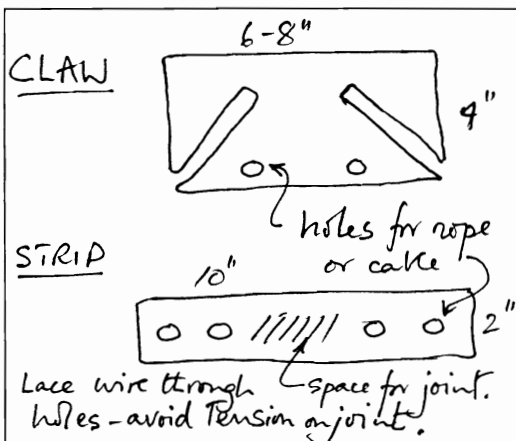 6-8"
CLAW
4"
holes for rope
or cable
STRIP
10"
2"
Lace wire through
holes - avoid Tension on joint.
space for joint.